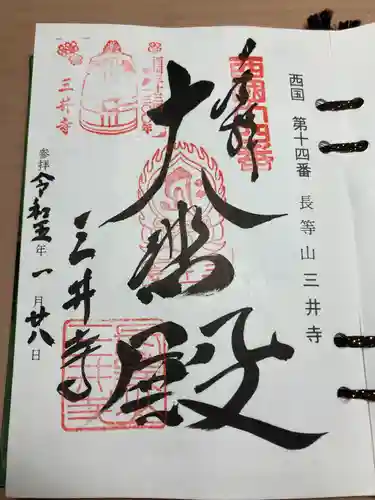 西国 第十四番 長等山 三井寺
奉拝
西国十四番
大悲殿
三井寺
三井寺
参拝 令和五年 一月廿八日